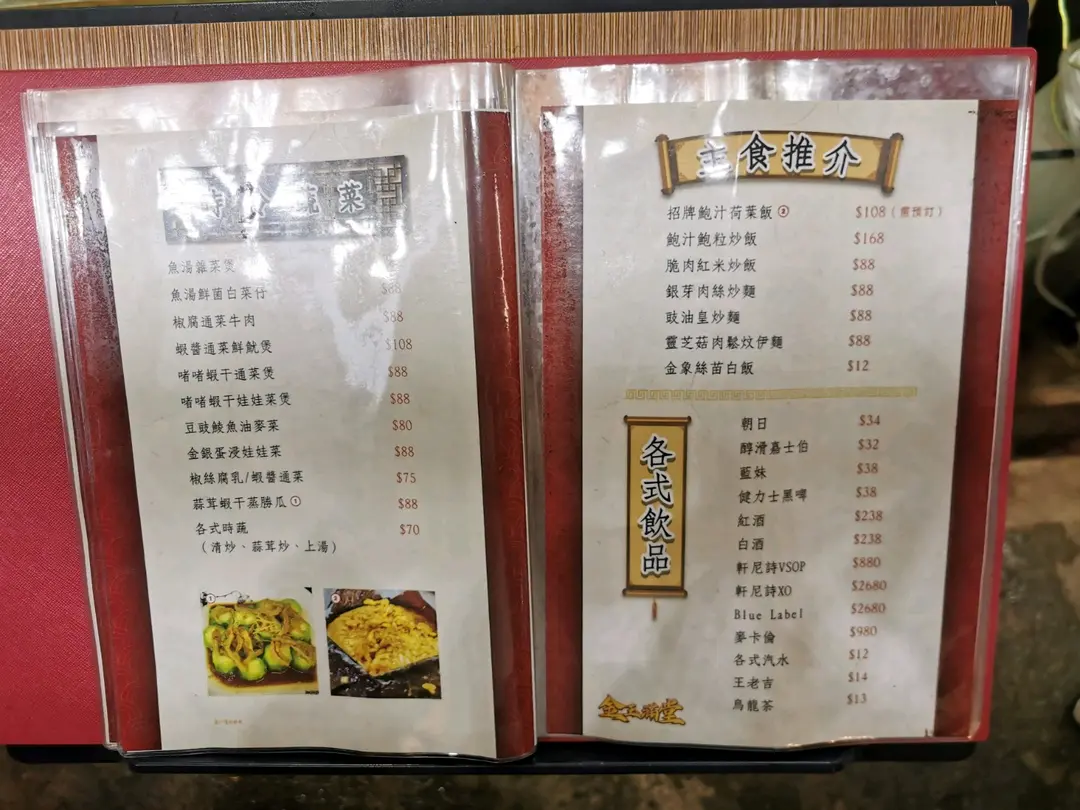 蔬菜
魚湯雜菜煲
魚湯鮮菌白菜仔 $88
椒腐通菜牛肉 $88
蝦醬通菜鮮魷煲 $108
啫啫蝦干通菜煲 $88
啫啫蝦干娃娃菜煲 $88
豆豉鯪魚油麥菜 $80
金銀蛋浸娃娃菜 $88
椒絲腐乳/蝦醬通菜 $75
蒜茸蝦干蒸勝瓜① $88
各式時蔬 $70
（清炒、蒜茸炒、上湯）
主食推介
招牌鮑汁荷葉飯② $108（需預訂）
鮑汁鮑粒炒飯 $168
脆肉紅米炒飯 $88
銀芽肉絲炒麵 $88
豉油皇炒麵 $88
靈芝菇肉鬆炆伊麵 $88
金象絲苗白飯 $12
各式飲品
朝日 $34
醇滑嘉士伯 $32
藍妹 $38
健力士黑啤 $38
紅酒 $238
白酒 $238
軒尼詩VSOP $880
軒尼詩XO $2680
Blue Label $2680
麥卡倫 $980
各式汽水 $12
王老吉 $14
烏龍茶 $13
金玉滿堂